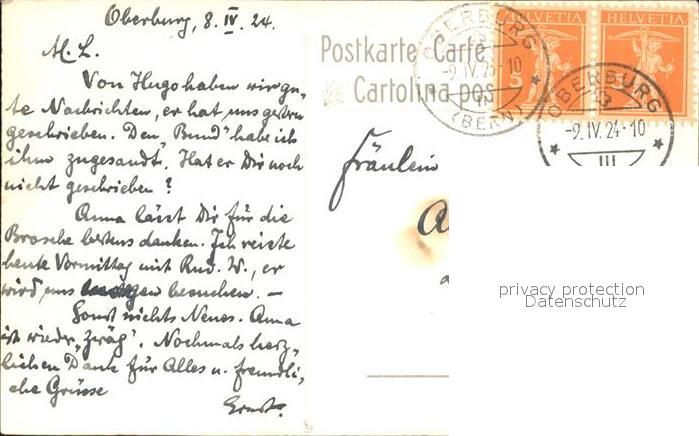 Oberburg, 8. IV. 24.
M. L.
Von Hugo haben wir gu„
te Nachrichten, er hat uns gestern
geschrieben. Den „Bund" habe ich
ihm zugesandt. Hat er Dir noch
nicht geschrieben?
Anna lässt Dir für die
Brosche bestens danken. Ich reiste
heute Vormittag mit Rud. W., er
wird uns besuchen. –
Sonst nichts Neues. Anna
ist wieder „zwäg". Nochmals herz„
lichen Dank für Alles u. freundli„
che Grüsse
Ernst.
Postkarte Carte
Cartolina pos
OBERBURG
-9.IV.24-10
(BERN)
HELVETIA
5
HELVETIA
OBERBURG
-9.IV.24-10
III
Fräulein
privacy protection
Datenschutz